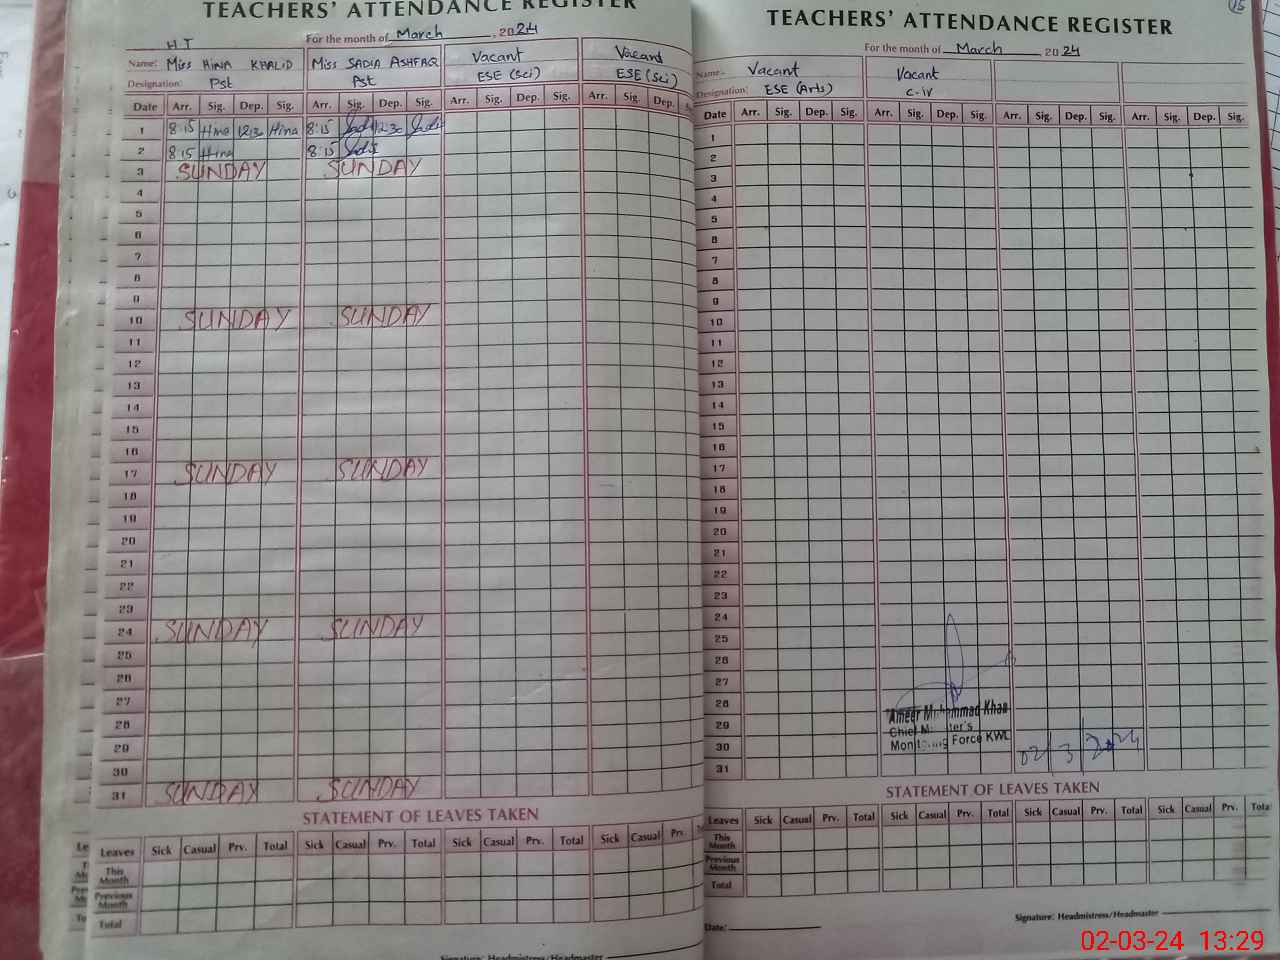 TEACHERS' ATTENDANCE REGISTER
For the month of March, 2024
HT
Name: Miss HINA KHALID Miss SADIA ASHFAQ Vacant Vacant
Designation: Pst Pst ESE (Sci) ESE (Sci)
Date Arr. Sig. Dep. Sig. Arr. Sig. Dep. Sig. Arr. Sig. Dep. Sig. Arr. Sig. Dep.
1 8:15 Hina 12:30 Hina 8:15 12:30
2 8:15 Hina 8:15
3 SUNDAY SUNDAY
4
5
6
7
8
9
10 SUNDAY SUNDAY
11
12
13
14
15
16
17 SUNDAY SUNDAY
18
19
20
21
22
23
24 SUNDAY SUNDAY
25
26
27
28
29
30
31 SUNDAY SUNDAY
STATEMENT OF LEAVES TAKEN
Leaves Sick Casual Prv. Total Sick Casual Prv. Total Sick Casual Prv. Total Sick Casual Prv.
This Month
Previous Month
Total
Signature: Headmistress/Headmaster
15
TEACHERS' ATTENDANCE REGISTER
For the month of March 2024
Name: Vacant Vacant
Designation: ESE (Arts) C-IV
Date Arr. Sig. Dep. Sig. Arr. Sig. Dep. Sig. Arr. Sig. Dep. Sig. Arr. Sig. Dep. Sig.
1
2
3
4
5
6
7
8
9
10
11
12
13
14
15
16
17
18
19
20
21
22
23
24
25
26
27
28
29
30
31
Ameer Muhammad Khan
Chief Minister's
Monitoring Force KWL
02/3/2024
STATEMENT OF LEAVES TAKEN
Leaves Sick Casual Prv. Total Sick Casual Prv. Total Sick Casual Prv. Total Sick Casual Prv. Total
This Month
Previous Month
Total
Signature: Headmistress/Headmaster
Date:
02-03-24 13:29